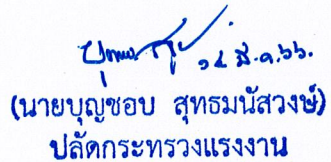 ๑๔ ส.ค. ๖๖.
(นายบุญชอบ สุทธมนัสวงษ์)
ปลัดกระทรวงแรงงาน